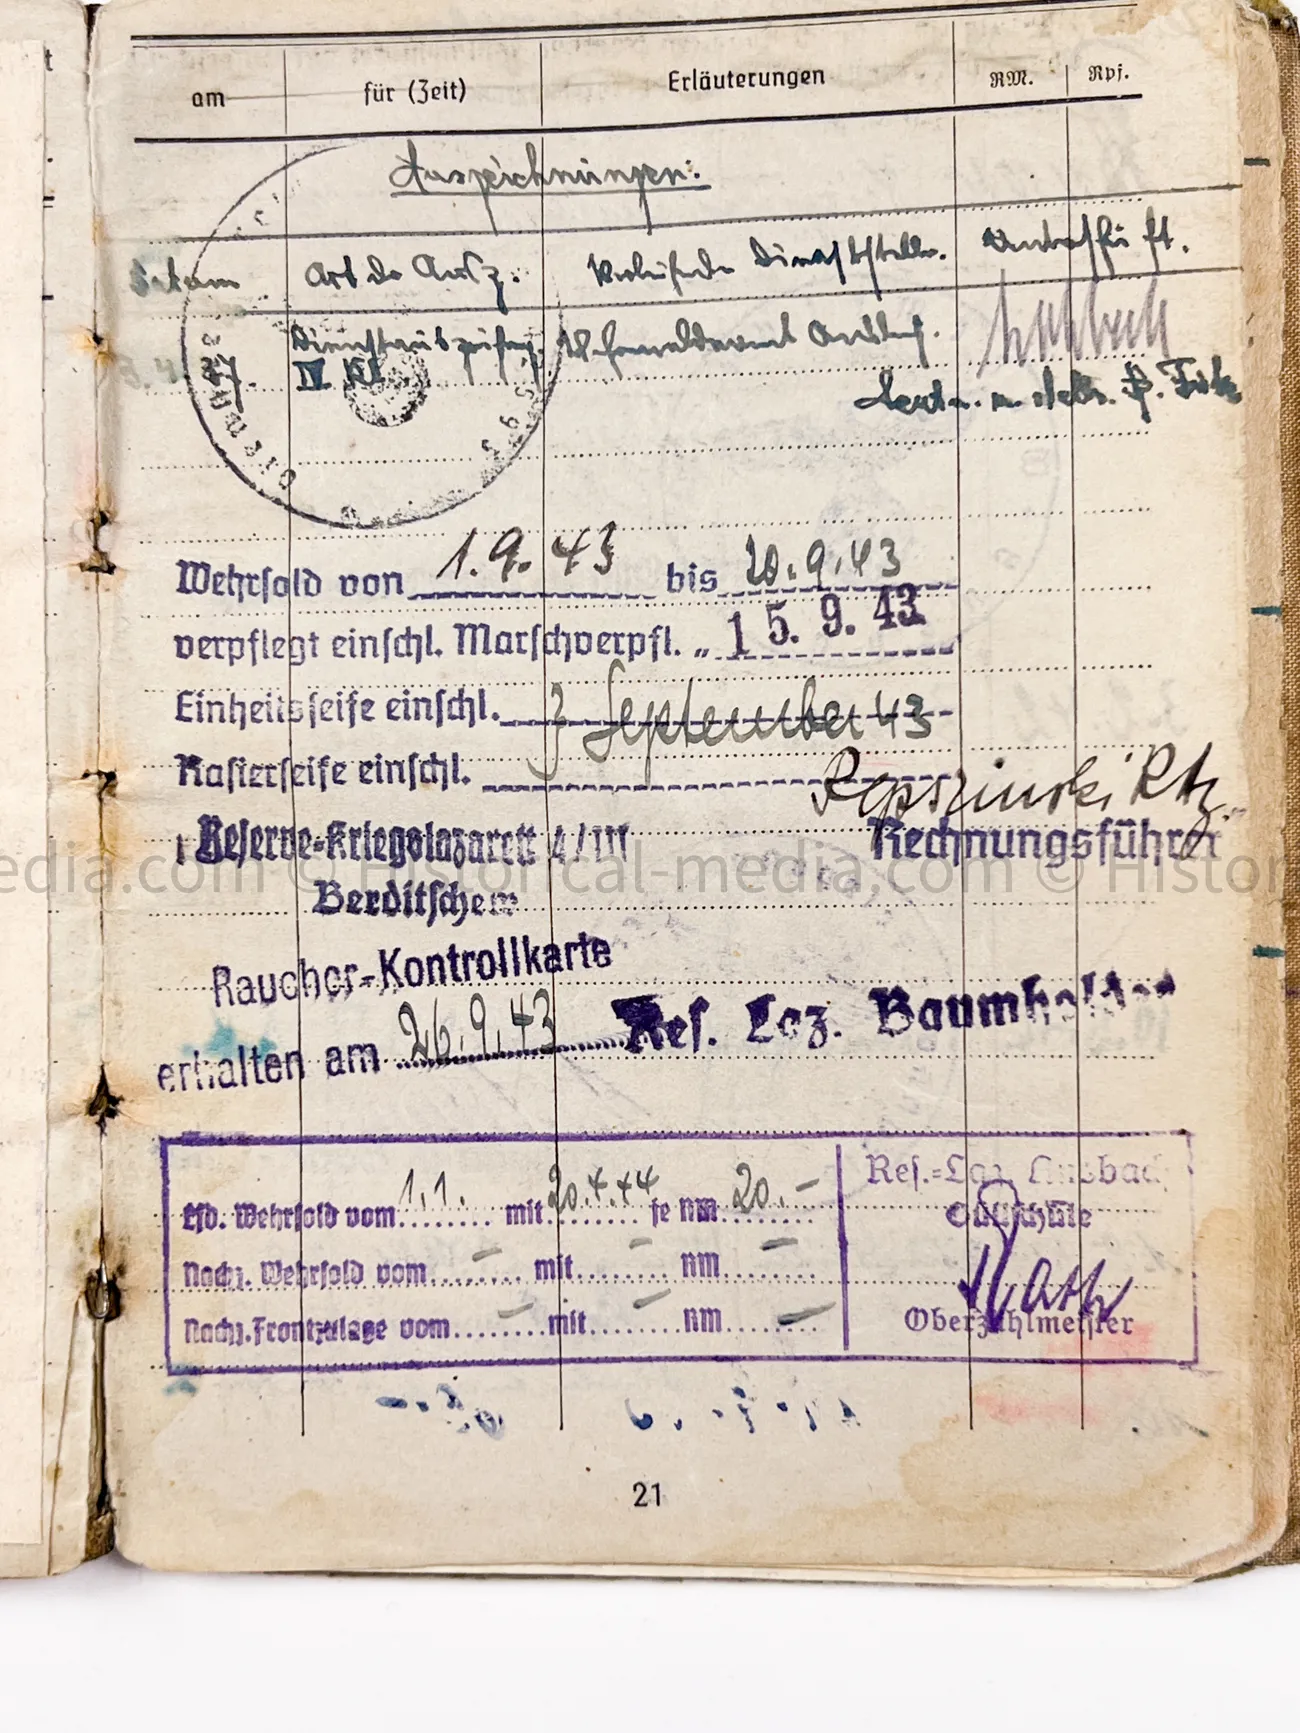 am für (Zeit) Erläuterungen RM. Rpf.
Auszeichnungen:
Datum Art der Ausz. Verleihende Dienststelle. Unterschrift.
37. Dienstauszeichng.
IV. Kl.
Wehrsold von 1.9.43 bis 20.9.43
verpflegt einschl. Marschverpfl. „ 15. 9. 43
Einheitsseife einschl. September 43
Rasierseife einschl.
Rechnungsführer
Reserve-Kriegslazarett 4/III
Berditschew
Raucher-Kontrollkarte
erhalten am 26.9.43 Res. Laz. Baumholder
Lfd. Wehrsold vom 1.1. mit 20.4.44 je RM 20.–
Nachz. Wehrsold vom – mit – RM –
Nachz. Frontzulage vom – mit – RM –
Res.-Laz. Ansbach
Oberzahlmeister
21
edia.com © Historical-media.com © Histor